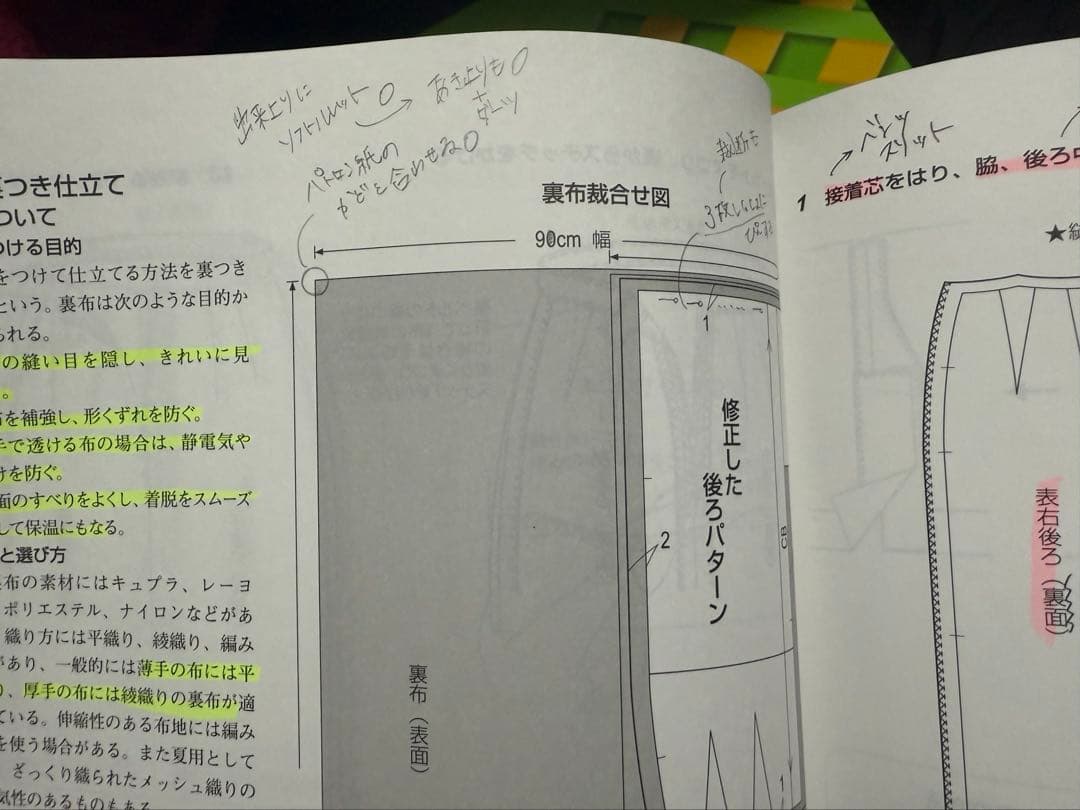 出来上りに
ソフトルレット
あき止りも
+
ダーツ
パトロン紙の
かどを合わせる
裁断も
裏つき仕立て
ついて
つける目的
をつけて仕立てる方法を裏つき
という。裏布は次のような目的か
られる。
の縫い目を隠し、きれいに見
。
布を補強し、形くずれを防ぐ。
手で透ける布の場合は、静電気や
けを防ぐ。
面のすべりをよくし、着脱をスムーズ
して保温にもなる。
と選び方
裏布の素材にはキュプラ、レーヨ
ポリエステル、ナイロンなどがあ
織り方には平織り、綾織り、編み
があり、一般的には薄手の布には平
り、厚手の布には綾織りの裏布が適
ている。伸縮性のある布地には編み
を使う場合がある。また夏用として
、ざっくり織られたメッシュ織りの
気性のあるものもある。
裏布裁合せ図
90cm 幅
1
修正した
後ろパターン
2
CB
裏布（表面）
1
ベンツ
スリット
1 接着芯をはり、脇、後ろ中
★
表右後ろ（裏面）